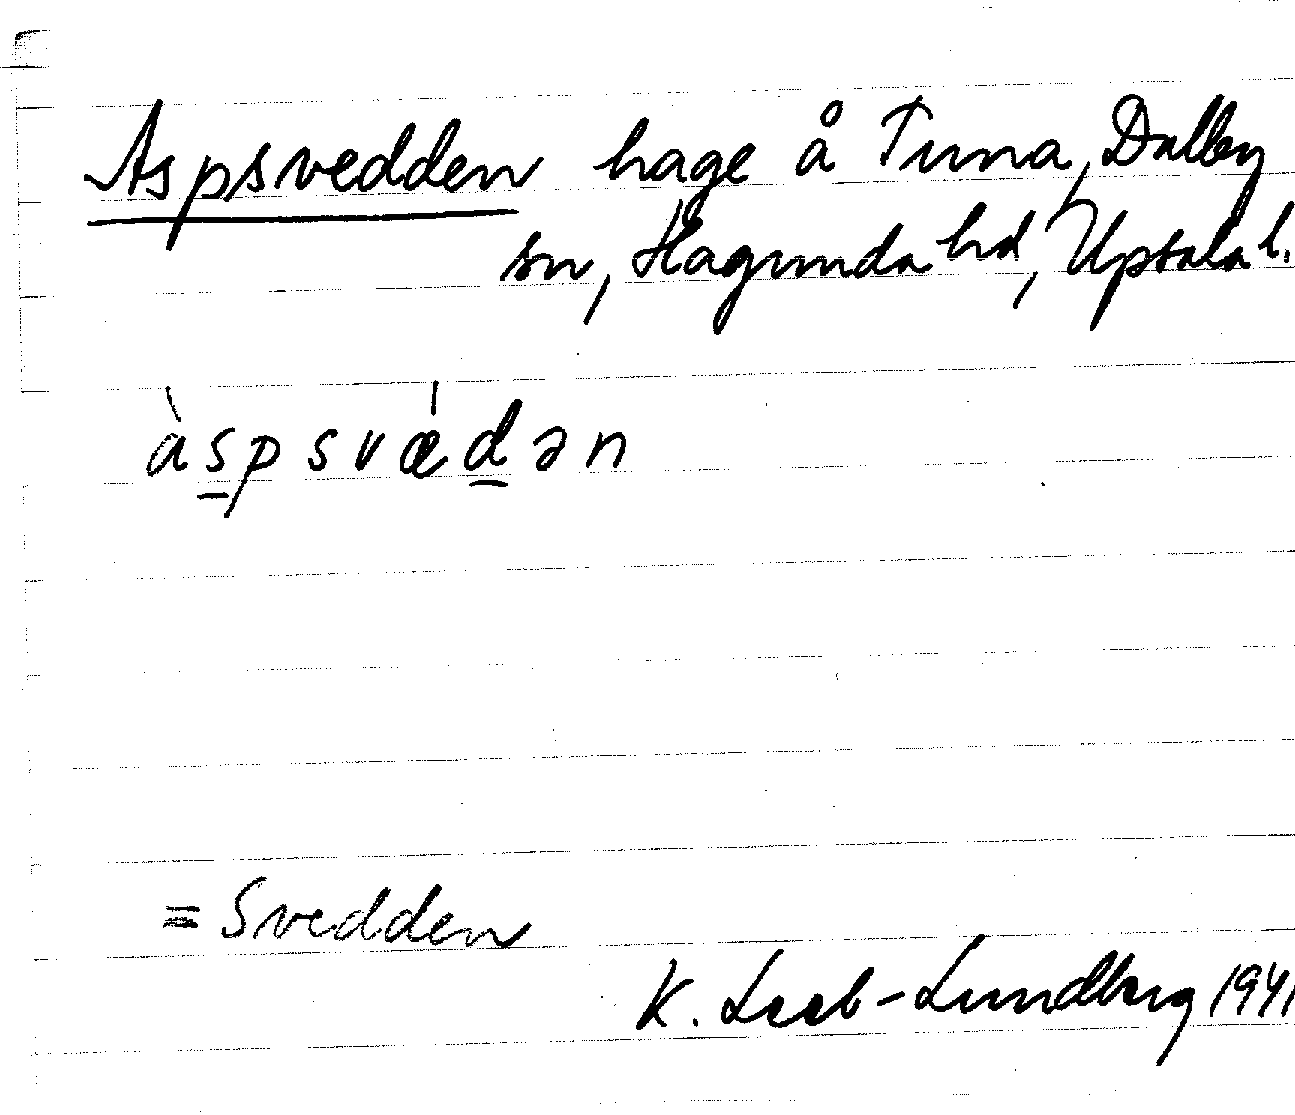 Aspsvedden hage å Tuna, Dalby
sn, Hagunda hd, Upsala l.
àspsvǽdən
= Svedden
K. Leeb-Lundberg 1941